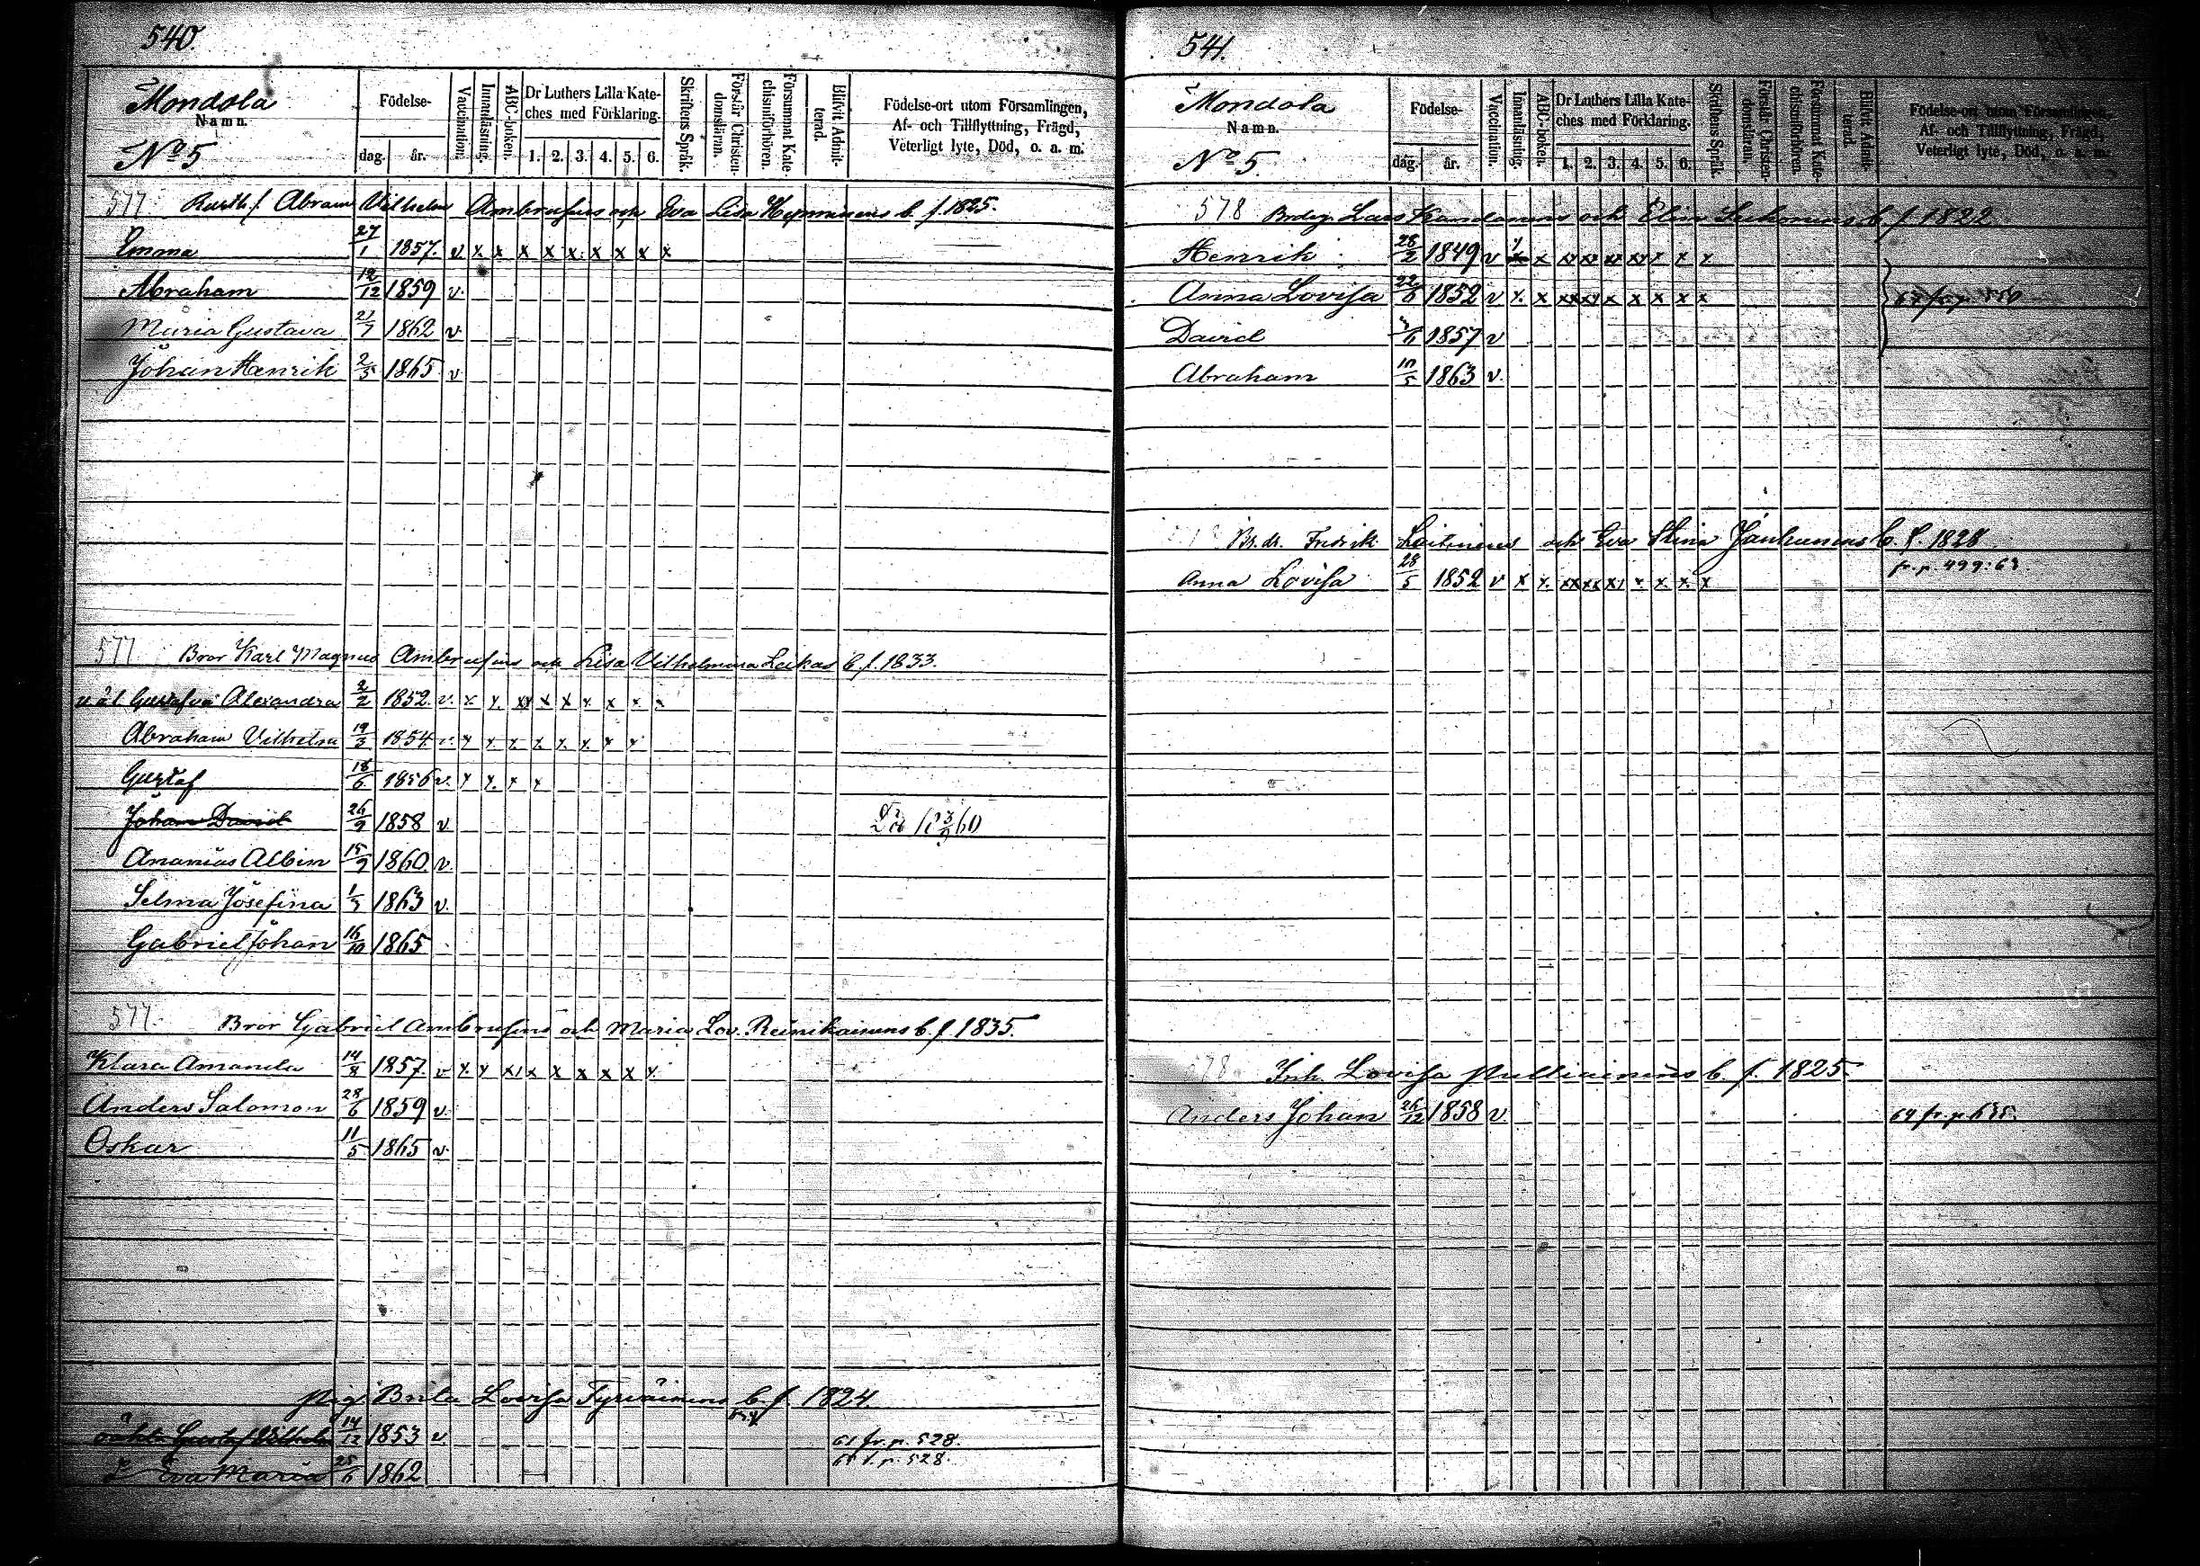 540.
Mondola
Namn.
No 5
Födelse-
dag. år.
Vaccination.
Innanläsning.
ABC-boken.
Dr Luthers Lilla Kate-
ches med Förklaring.
1. 2. 3. 4. 5. 6.
Skriftens Språk.
Förstår Christen-
domsläran.
Försummat Kate-
chismiförhören.
Blifvit Admit-
terad.
Födelse-ort utom Församlingen,
Af- och Tillflyttning, Frägd,
Veterligt lyte, Död, o. a. m.
577 Abram Vilhelm Ambrusins och Eva Lisa b. f. 1825.
Emma 27/1 1857. v x x x x x x x x x
Abraham 19/12 1859 v.
Maria Gustava 21/7 1862 v
Johan Henrik 2/5 1865 v
577 Bror Karl Magnus Ambrusins och Lisa Vilhelmina Leikas b. f. 1833.
Gustafva Alexandra 2/2 1852. v. x x xx x x x x x x
Abraham Vilhelm 19/3 1854 v x x x x x x x x
Gustaf 18/6 1856 v. x x x x
Johan David 26/9 1858 v
Ananias Albin 15/9 1860. v.
Selma Josefina 1863 v.
Gabriel Johan 16/10 1865
577. Bror Gabriel Ambrusins och Maria Lov. Reinikainens b. f 1835.
Klara Amanda 14/8 1857. v x x x x x x x x x
Anders Salomon 28/6 1859 v
Oskar 11/5 1865 v
Pig. Brita Lovisa b. f. 1824.
oäkta Gustaf Vilhelm 14/12 1853 v. 61 fr. p. 528.
Eva Maria 25/6 1862 p. 528.
541.
Mondola
Namn.
No 5.
Födelse-
dag. år.
Vaccination.
Innanläsning.
ABC-boken.
Dr Luthers Lilla Kate-
ches med Förklaring.
1. 2. 3. 4. 5. 6.
Skriftens Språk.
Förstår Christen-
domsläran.
Försummat Kate-
chismiförhören.
Blifvit Admit-
terad.
Födelse-ort utom Församlingen,
Af- och Tillflyttning, Frägd,
Veterligt lyte, Död, o. a. m.
578 Lars och Elin b. f 1822
Henrik 28/2 1849 v x x xx xx xx xx x x x
Anna Lovisa 22/6 1852 v x. x xx xx x x x x x
David 1857 v
Abraham 10/5 1863 v.
Fredrik Loitinens och Eva Stina Jankunens b. f. 1828
Anna Lovisa 28/5 1852 v x x. xx xx xx x x x. x fr. p. 499. 63
578 Inh. Lovisa Pulliainens b. f. 1825
Anders Johan 26/12 1858 v.